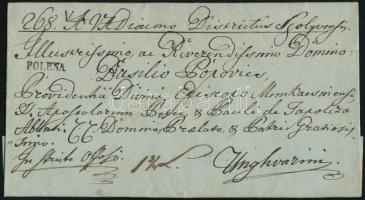 268. A VA Diacono Districtus Szolyvensis
Illustrissimo, ac Reverendissimo Domino:
POLENA
Basilio Popovics,
Providentia Divina Episcopo Munkacsiensi
SS. Apostolorum Petri, & Pauli de Tapolcza
Abbati. CC. Domino, Prælato, & Patri Gratiosis
simo.
In Officio Officioso.
Unghvarini